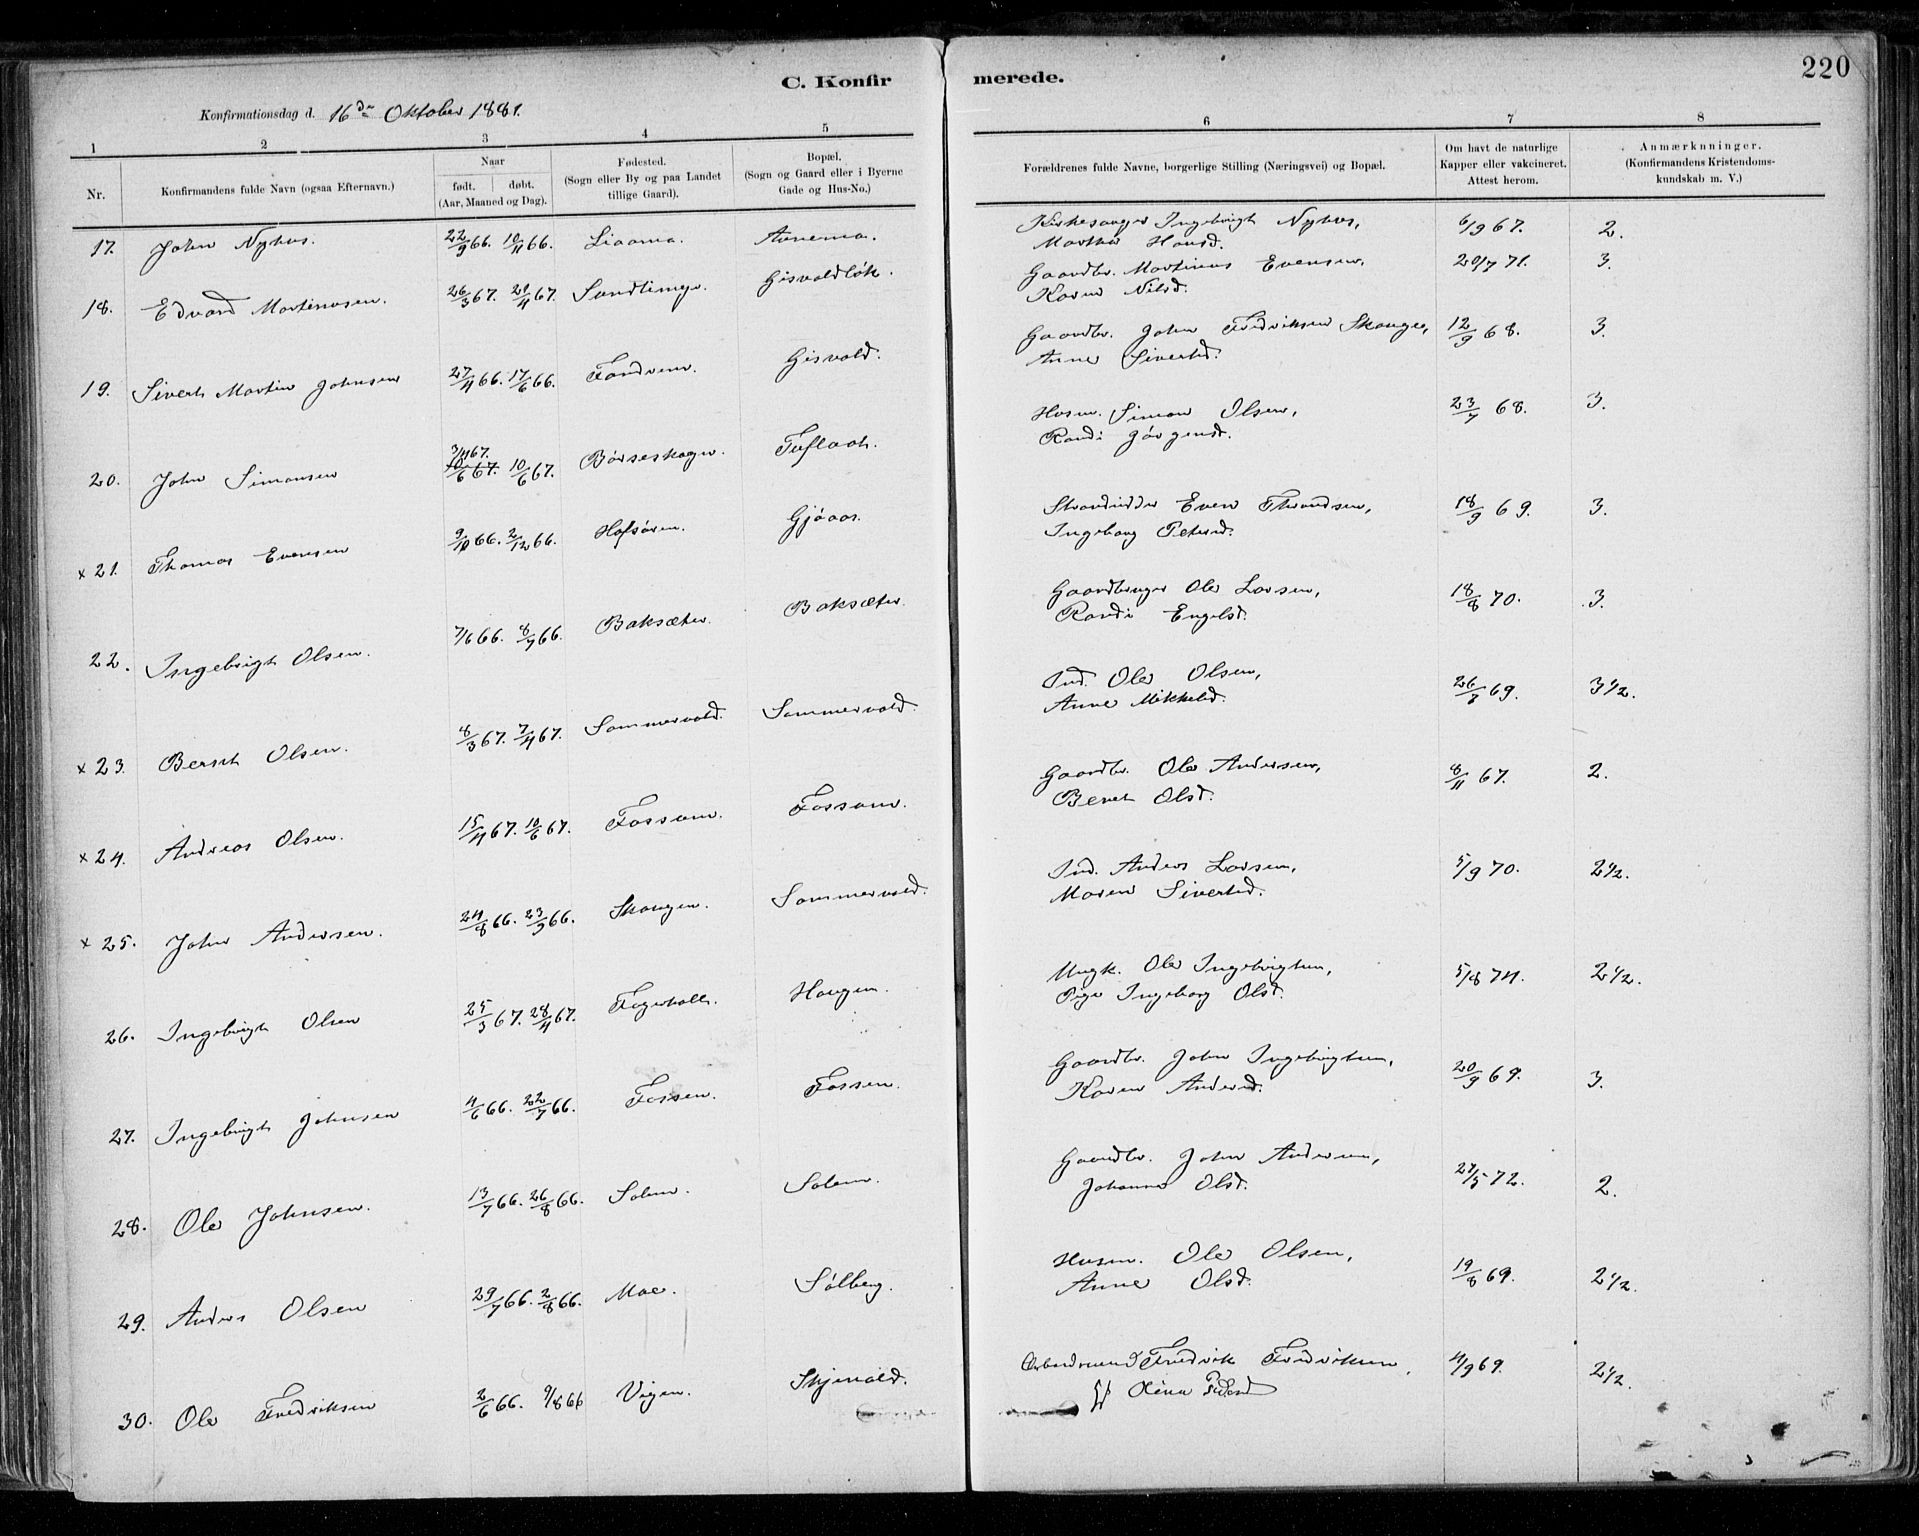 220
C. Konfirmerede.
Konfirmationsdag d. 16de Oktober 1881.
1 2 3 4 5 6 7 8
Nr. Konfirmandens fulde Navn (ogsaa Efternavn.) Naar født. døbt. (Aar, Maaned og Dag). Fødested. (Sogn eller By og paa Landet tillige Gaard). Bopæl. (Sogn og Gaard eller i Byerne Gade og Hus-No.) Forældrenes fulde Navne, borgerlige Stilling (Næringsvei) og Bopæl. Om havt de naturlige Kapper eller vakcineret. Attest herom. Anmærkninger. (Konfirmandens Kristendomskundskab m. V.)
17. John Nyhus. 22/9 66. 10/11 66. Kirkesanger Ingebrigt Nyhus, 6/9 67. 2.
Martha Hansd.
18. Edvard Martinusen. 26/3 67. 21/4 67. Gisvaldløk. Gaardbr. Martinus Evensen, 20/7 71. 3.
Karen Nilsd.
19. Sivert Martin Johnsen 27/4 66. 17/6 66. Gisvald. Gaardbr. John Fredriksen Skauge, 12/9 68. 3.
Anne Sivertsd.
20. John Simonsen 3/4 67. 10/6 67. 10/6 67. Børseskogn. Husm. Simon Olsen, 23/7 68. 3.
Randi Jørgensd.
x 21. Thomas Evensen 9/10 66. 2/12 66. Hofsøren. Gjøaas. Strandsidder Even Thomdsen, 18/9 69. 3.
Ingeborg Petersd.
22. Ingebrigt Olsen. 7/6 66. 8/7 66. Baksæter. Baksæter. Gaardbruger Ole Larsen, 18/8 70. 3.
Randi Engelsd.
x 23. Bernt Olsen. 8/3 67. 7/4 67. Sommervold. Sommervold. Ind. Ole Olsen, 26/7 69. 3 1/2.
Anne Mikkelsd.
x 24. Andreas Olsen. 15/4 67. 10/6 67. Fossum. Fossum. Gaardbr. Ole Andersen, 8/11 67. 2.
Beret Olsd.
x 25. John Andersen. 24/8 66. 23/9 66. Skaugen. Sommervold. Ind. Anders Larsen, 5/9 70. 2 1/2.
Maren Sivertsd.
26. Ingebrigt Olsen 25/3 67. 28/4 67. Haugen. Ungk. Ole Ingebrigtsen, 5/8 74. 2 1/2.
Pige Ingeborg Olsd.
27. Ingebrigt Johnsen 4/6 66. 22/7 66. Fossen. Fossen. Gaardbr. John Ingebrigtsen, 20/9 69. 3.
Karen Andersd.
28. Ole Johnsen. 13/7 66. 26/8 66. Solem. Solem. Gaardbr. John Andersen, 27/5 72. 2.
Johanna Olsd.
29. Anders Olsen 29/7 66. 2/8 66. Moe. Sølberg. Husm. Ole Olsen, 19/8 69. 2 1/2.
Anne Olsd.
30. Ole Fredriksen 2/6 66. 9/8 66 Vigen. Skjenald. Arbeidsmand Fredrik Fredriksen, 4/9 69. 2 1/2.